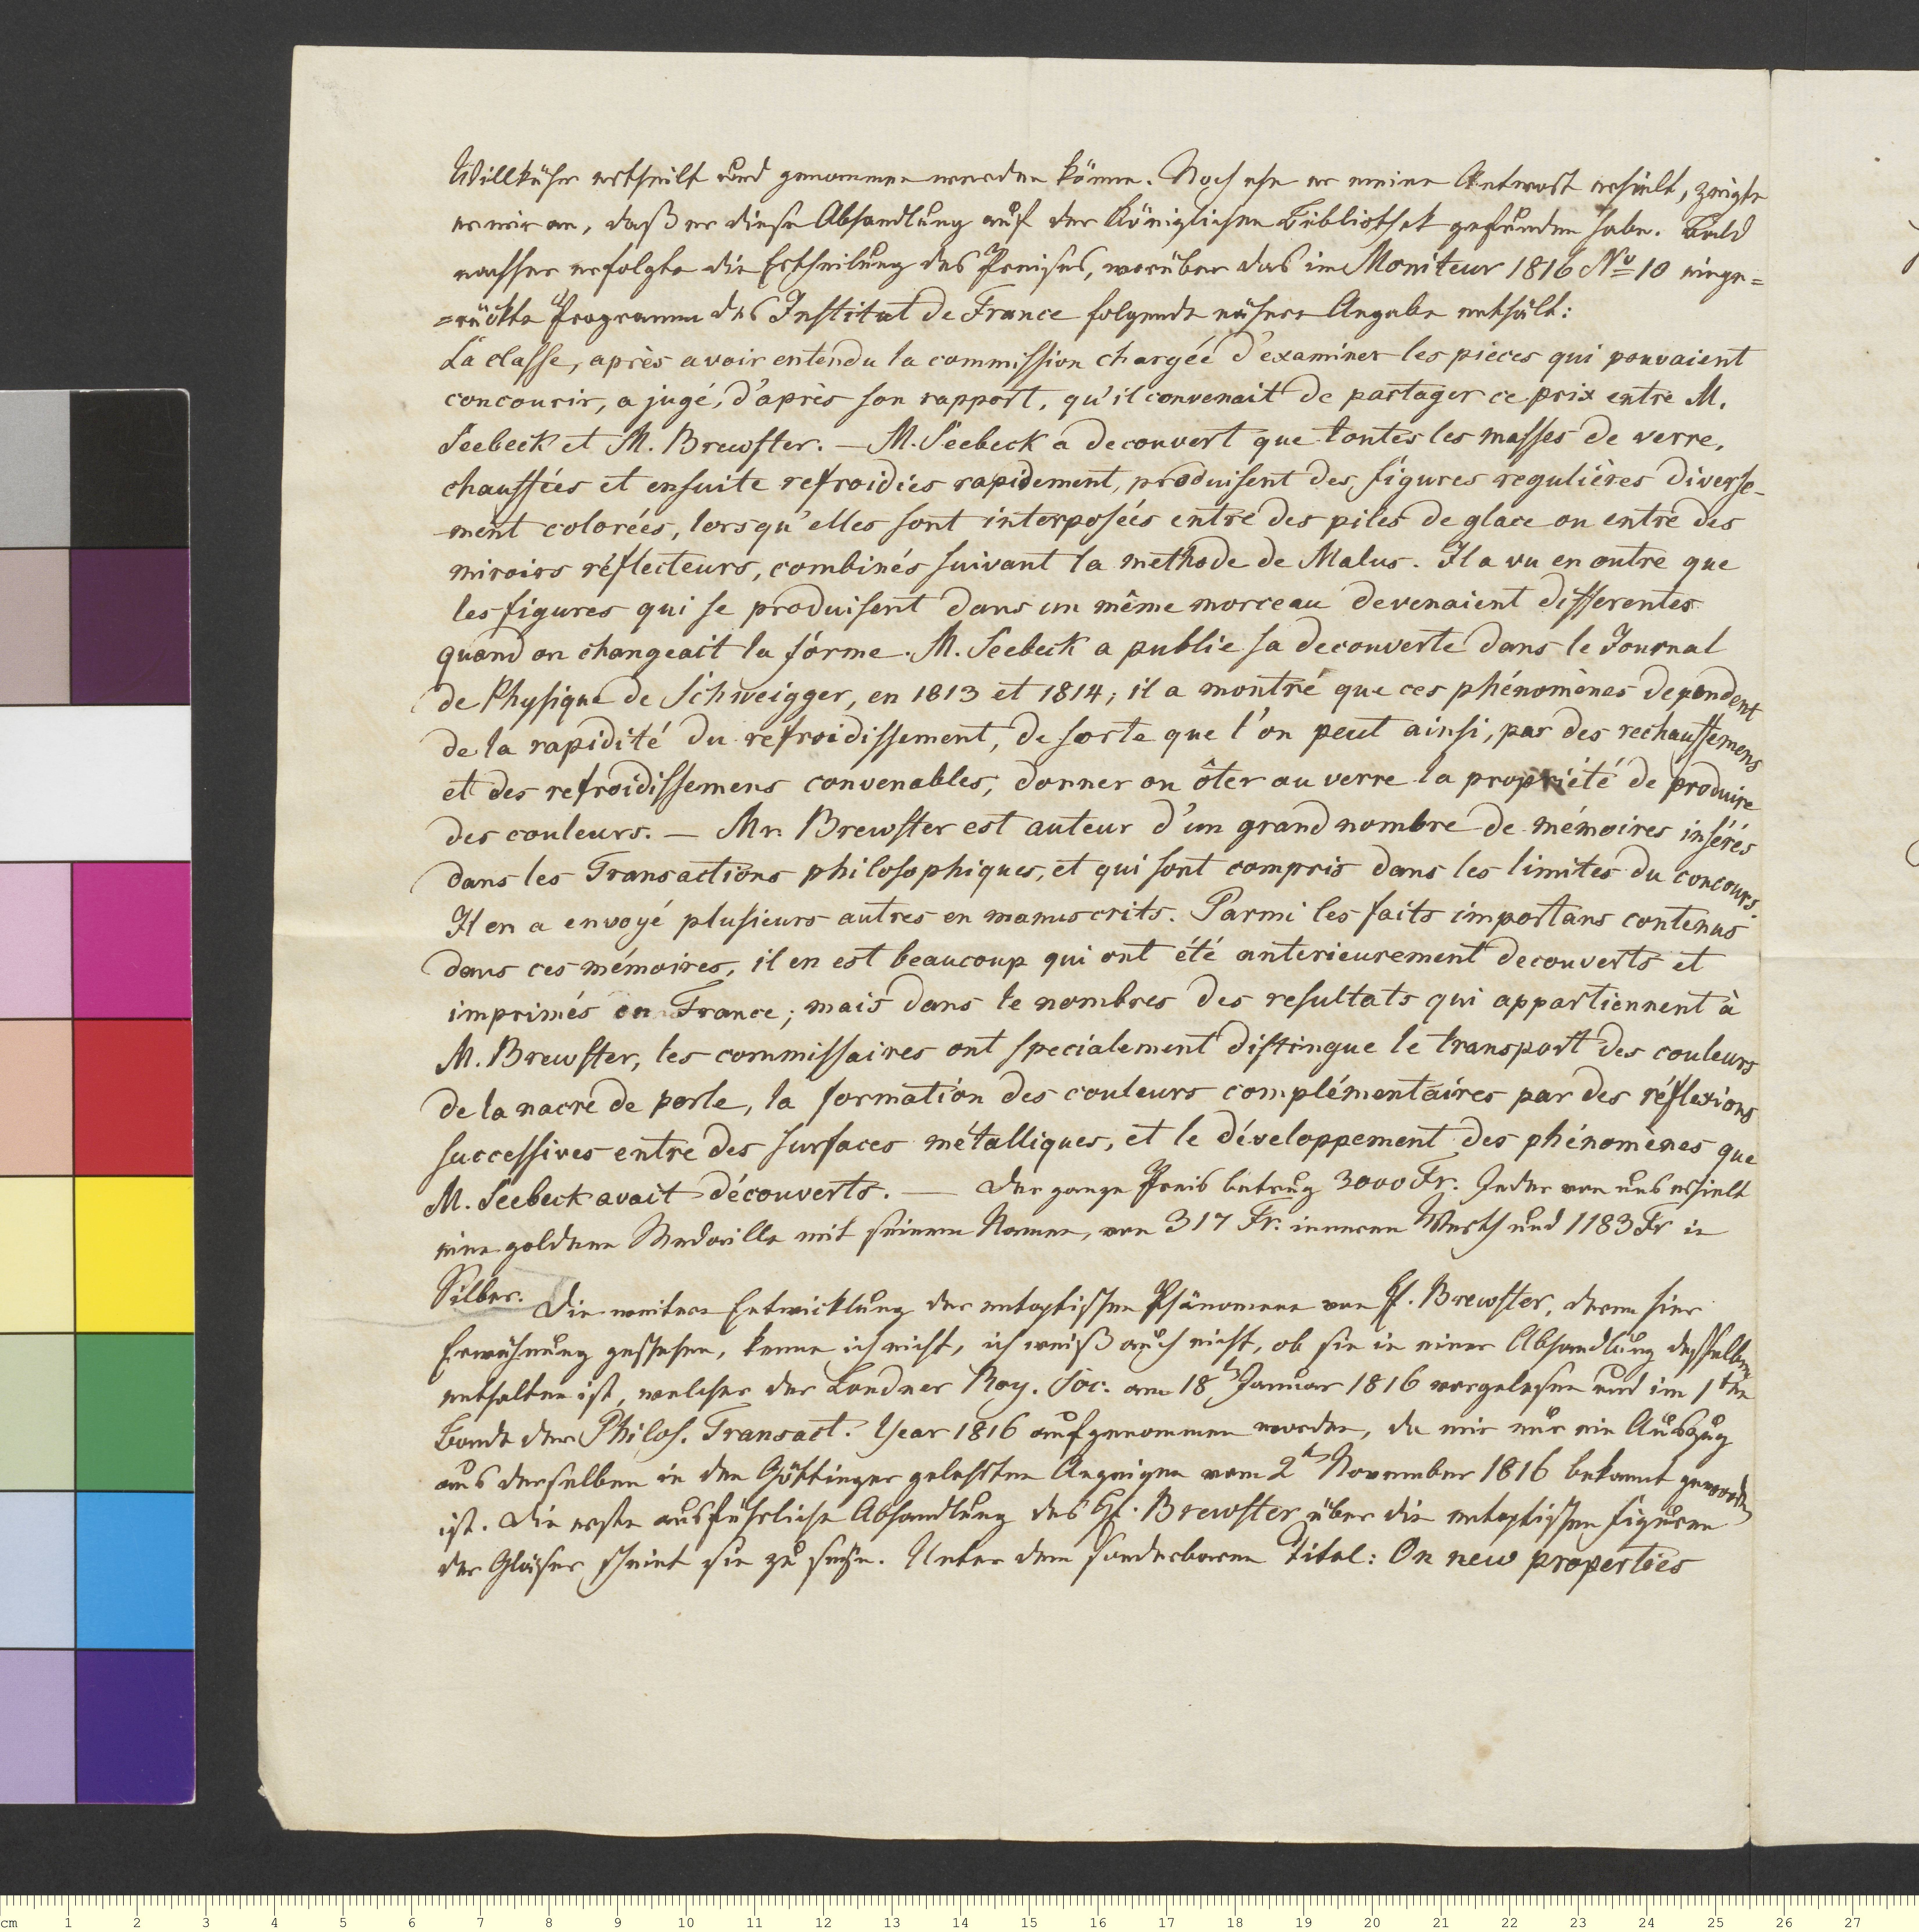 Willkühr ertheilt und genommen werden könne. Noch ehe er meine Antwort erhielt, zeigte
er mir an, daß er diese Abhandlung auf der Königlichen Bibliothek gefunden habe. Bald
nachher erfolgte die Ertheilung des Preises, worüber das im Moniteur 1816 No 10 einge=
=rückte Programm des Institut de France folgende nähere Angabe enthält:
La classe, après avoir entendu la commission chargée d'examiner les pieces qui pouvaient
concourir, a jugé, d'après son rapport, qu'il convenait de partager ce prix entre M.
Seebeck et M. Brewster. — M. Seebeck a decouvert que toutes les masses de verre,
chauffées et ensuite refroidies rapidement, produisent des figures regulières diverse-
ment colorées, lorsqu'elles sont interposées entre des piles de glace ou entre des
miroirs réflecteurs, combinés suivant la methode de Malus. Il a vu en outre que
les figures qui se produisent dans un même morceau devenaient differentes
quand on changeait la forme. M. Seebeck a publie sa decouverte dans le Journal
de Physique de Schweigger, en 1813 et 1814; il a montré que ces phénomènes dependent
de la rapidité du refroidissement, de sorte que l'on peut ainsi, par des rechauffemens
et des refroidissemens convenables, donner ou ôter au verre la propriété de produire
des couleurs. — Mr. Brewster est auteur d'un grand nombre de mémoires insérés
dans les Transactions philosophiques, et qui sont compris dans les limites du concours.
Il en a envoyé plusieurs autres en manuscrits. Parmi les faits importans contenus
dans ces mémoires, il en est beaucoup qui ont été anterieurement decouverts et
imprimés en France; mais dans le nombres des resultats qui appartiennent à
M. Brewster, les commissaires ont specialement distingue le transport des couleurs
de la nacre de perle, la formation des couleurs complémentaires par des réflexions
successives entre des surfaces métalliques, et le développement des phénomènes que
M. Seebeck avait découverts. — Der ganze Preis betrug 3000 Fr. Jeder von uns erhielt
eine goldene Medaille mit seinem Namen, von 317 Fr. inneren Werth und 1183 Fr in
Silber. Die weitere Entwicklung der entoptischen Phänomene von H. Brewster, deren hier
Erwähnung geschehen, kenne ich nicht, ich weiß auch nicht, ob sie in einer Abhandlung desselben
enthalten ist, welcher der Londner Roy. Soc. am 18t Januar 1816 vorgelesen und im 1ten
Bande der Philos. Transact. Year 1816 aufgenommen worden, da mir nur ein Auszug
aus derselben in den Göttinger gelehrten Anzeigen vom 2t November 1816 bekannt geworden
ist. Die erste ausführliche Abhandlung des H. Brewster über die entoptischen Figuren
der Gläser scheint sie zu seyn. Unter dem sonderbaren Titel: On new properties